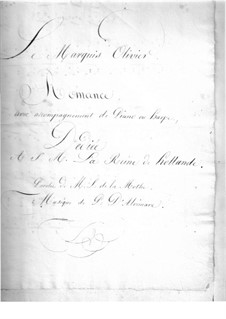 Le Marquis Olivier
Romance
avec accompagnement de Piano ou harpe
Dédié
A S. M. La Reine de hollande.
Paroles de M. L. de la Mothe
Musique de P. D'Alvimare